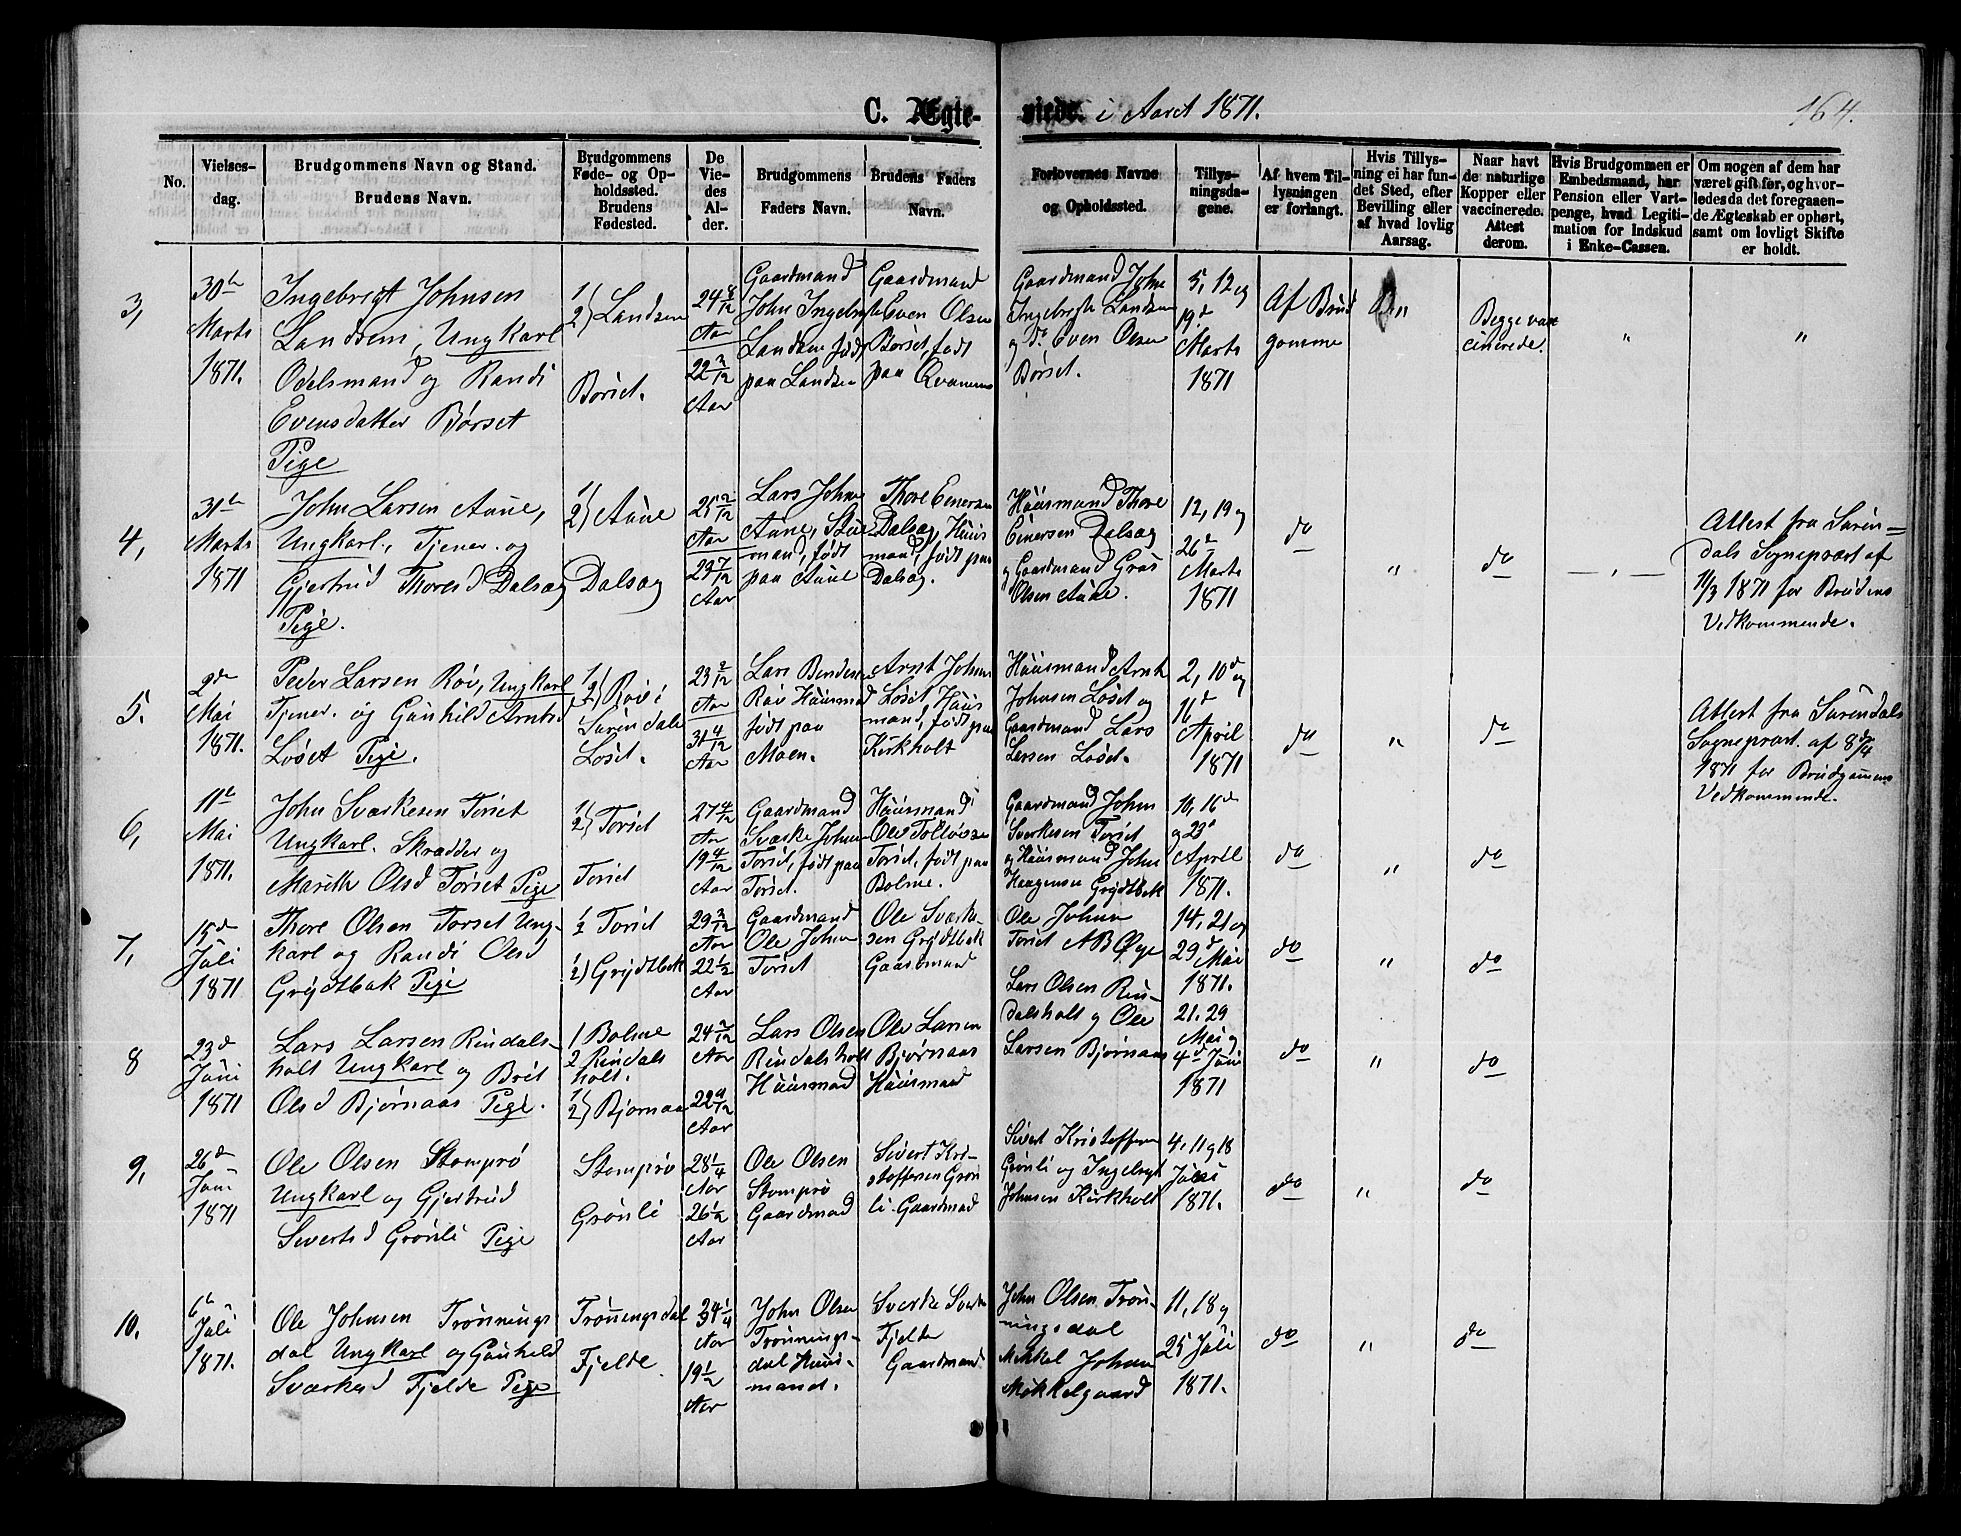 C. Ægte-
viede. i Aaret 1871.
164.
No.
Vielses-
dag.
Brudgommens Navn og Stand.
Brudens Navn.
Brudgommens
Føde- og Op-
holdssted.
Brudens
Fødested.
De
Vie-
des
Al-
der.
Brudgommens
Faders Navn.
Brudens Faders
Navn.
Forlovernes Navne
og Opholdssted.
Tillys-
ningsda-
gene.
Af hvem Til-
lysningen
er forlangt.
Hvis Tillys-
ning ei har fun-
det Sted, efter
Bevilling eller
af hvad lovlig
Aarsag.
Naar havt
de naturlige
Kopper eller
vaccinerede.
Attest
derom.
Hvis Brudgommen er
Embedsmand, har
Pension eller Vart-
penge, hvad Legiti-
mation for Indskud
i Enke-Cassen.
Om nogen af dem har
været gift før, og hvor-
ledes da det foregaaen-
de Ægteskab er ophørt,
samt om lovligt Skifte
er holdt.
3,
30te
Marts
1871.
Ingebrigt Johnsen
Landsem, Ungkarl
Odelsmand og Randi
Evensdatter Børset
Pige
1)
2) Landsem
Børset.
24 8/12
Aar
22 3/12
Aar
Gaardmand
John Ingebrigt
Landsem født
paa Landsem
Gaardmand
Even Olsen
Børset, født
paa Kvammen
Gaardmand John
Ingebrigts Landsem
og do Even Olsen
Børset.
5, 12 og
19de
Marts
1871
Af Brud
gomme
"
Begge vac
cinerede.
"
"
4,
31te
Marts
1871
John Larsen Aune,
Ungkarl, Tjener. og
Gjertrud Thoresd Dalsæg
Pige.
1)
2) Aune
Dalsæg
25 2/12
Aar
29 7/12
Aar
Lars Johns
Aune, Huus
mand, født
paa Aune
Thore Einersen
Dalsæg, Huus
mand, født paa
Dalsæg.
Huusmand Thore
Einersen Dalsæg
og Gaardmand Gras
Olsen Aune.
12, 19 og
26de
Marts
1871
do
"
do
— " —
Attest fra Suren-
dals Sogneprest af
11/3 1871 for Brudens
Vedkommende.
5.
2den
Mai
1871.
Peder Larsen Røv, Ungkarl
Tjener. og Gunhild Arntsd
Løset Pige.
1)
2) Røv i
Surendale
Løset.
23 2/12
Aar
31 4/12
Aar
Lars Bendsen
Røv Huusmand
født paa
Moen.
Arnt Johnsen
Løset, Huus
mand, født paa
Kirkholt
Huusmand Arnt
Johnsen Løset og
Gaardmand Lars
Larsen Løset.
2, 10de og
16de
April
1871
do
"
do
Attest fra Surendals
Sogneprest. af 8de/4
1871 for Brudgommens
Vedkommende.
6,
11te
Mai
1871.
John Sværkesen Torset
Ungkarl. Skrædder og
Marith Olsd Torset Pige
1)
2) Torset
Torset
27 4/12
Aar
19 4/12
Aar
Gaardmand
Sværke Johnsen
Torset, født paa
Torset.
Huusmand
Ole Tollevsen
Torset, født paa
Bolme.
Gaardmand John
Sverkesen Torset
og Huusmand John
Haagensen Grytbæk
10, 16de
og 23de
April
1871.
do
"
do
7,
15de
Juli
1871
Thore Olsen Torset Ung-
karl og Randi Olsd
Grytbak Pige
1/2 Torset
1/2) Grytbæk
29 3/12
Aar
22 1/2
Aar
Gaardmand
Ole Johnsen
Torset
Ole Sværke-
sen Grytbæk
Gaardmand
Ole Johnsen
Torset AB Øye
14, 21 og
29de Mai
1871.
do
"
do
8
23de
Juni
1871
Lars Larsen Rindals-
holt Ungkarl og Brit
Olsd Bjørnaas Pige.
1 Bolme
2 Rindals
holt.
1)
2) Bjørnaas
24 2/12
Aar
22 9/12
Aar
Lars Olsen
Rindalsholt
Huusmand
Ole Larsen
Bjørnaas
Huusmand
Lars Olsen Rin-
dalsholt og Ole
Larsen Bjørnaas
21. 29
Mai og
4de Juni
1871
do
"
do
9,
26de
Juni
1871
Ole Olsen Stomprø
Ungkarl og Gjertrud
Sivertsd Grønli Pige
Stomprø
Grønli
28 1/4
Aar
26 1/2
Aar
Ole Olsen
Stomprø
Gaardmand
Sivert Kri-
stoffersen Grøn
li. Gaardmand
Sivert Kristoffersen
Grønli og Ingebrigt
Johnsen Kirkholt
4, 11 og 18
Juni
1871.
do
"
do
10.
6te
Juli
1871.
Ole Johnsen Trønnings
dal Ungkarl og Gunhild
Sværked Fjelde Pige
Trønningsdal
Fjelde
24 1/4
Aar
19 1/2
Aar
John Olsen
Trønnings-
dal Huus-
mand.
Sverke Sverkes
Fjelde
Gaardmand
John Olsen Trøn-
ningsdal
Mikkel Johnsen
Mikkelgaard
11, 18 og
25 Juli
1871.
do
"
do